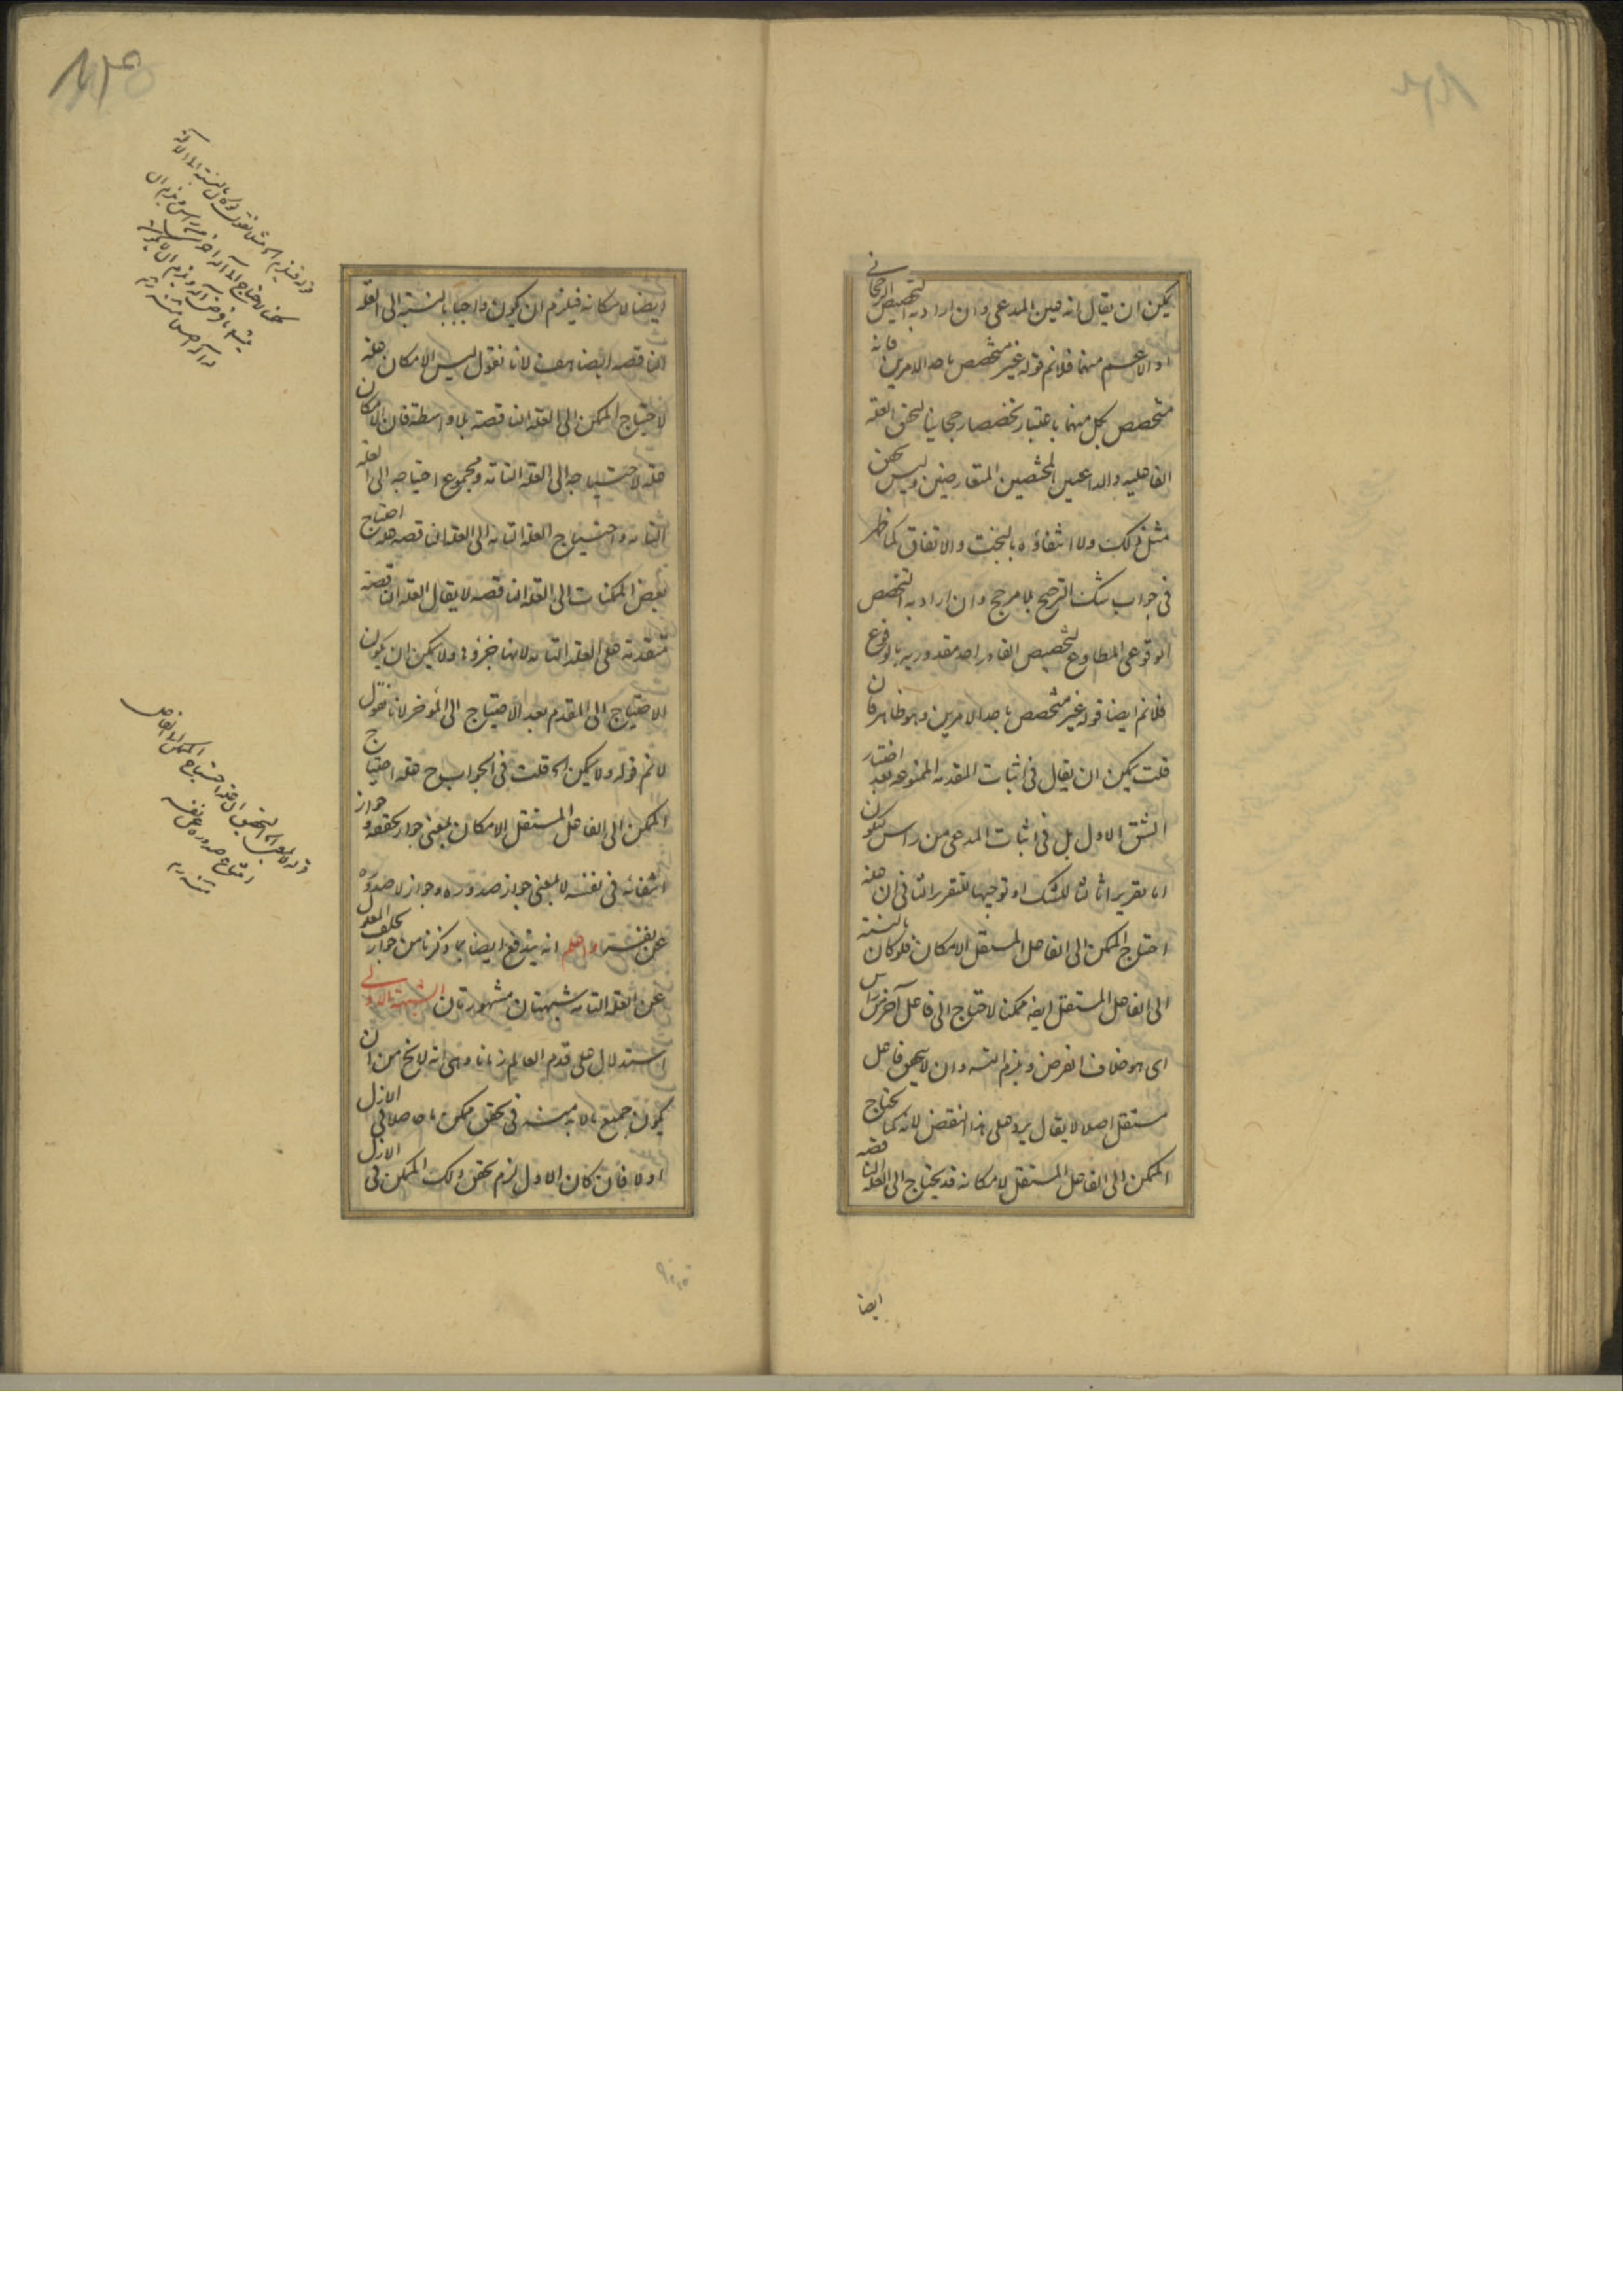 يمكن ان يقال انه عين المدعى وان اراد به التخصيص الرجحانى
او الاعم منهما فلانم قوله غير متخصص باحد الامرين فانه
متخصص بكل منهما باعتبار تخصصا رجحانيا لتحقق العلة
الفاعلية والداعيين المخصصين المتعارضين وليس تحقق
مثل ذلك ولا انتفاؤه بالبخت والاتفاق كما ظهر
فى جواب شك الترجيح بلا مرجح وان اراد به التخصص
الوقوعى المطاوع لتخصيص القادر احد مقدوريه بالوقوع
فلانم ايضا قوله غير متخصص باحد الامرين وهو ظاهر فان
قلت يمكن ان يقال فى اثبات المقدمة الممنوعة بعد اختيار
الشق الاول بل فى اثبات المدعى من راس ليكون
اما تقريرا ثالثا للشك او توجيها للتقرير الثانى ان علة
احتياج الممكن الى الفاعل المستقل الامكان فلو كان بالنسبة
الى الفاعل المستقل ايضا ممكنا لاحتاج الى فاعل آخر من راس
اى هو خلاف الفرض ويلزم التسه وان لا يتحقق فاعل
مستقل اصلا لا يقال يرد على هذا النقض لانه كما يحتاج
الممكن الى الفاعل المستقل لامكانه قد يحتاج الى العلة الناقصة
ايضا
ايضا لامكانه فيلزم ان يكون واجبا بالنسبة الى العلة
الناقصة ايضا لانا نقول ليس الامكان علة
لاحتياج الممكن الى العلة الناقصة بلا واسطة فان الامكان
علة لاحتياجه الى العلة التامة ومجموع احتياجه الى العلة
التامة واحتياج العلة التامة الى العلة الناقصة علة احتياج
بعض الممكنات الى العلة الناقصة لا يقال العلة الناقصة
متقدمة على العلة التامة لانها جزؤه ولا يمكن ان يكون
الاحتياج الى المقدم بعد الاحتياج الى المؤخر لانا نقول
لانم قوله ولا يمكن الخ قلت فى الجواب ح علة احتياج
الممكن الى الفاعل المستقل الامكان بمعنى جواز تحققه وجواز
انتفائه فى نفسه لا بمعنى جواز صدوره وجواز لا صدوره
عن نفسه واعلم انه يندفع ايضا بما ذكرنا من جواز تخلف المعلول
عن العلة التامة شبهتان مشهورتان الشبهة الاولى
استدلال على قدم العالم زمانا وهى انه لا يخ من ان
يكون جميع ما لا بد منه فى تحقق ممكن ما حاصلا فى الازل
او لا فان كان الاول لزم تحقق ذلك الممكن فى الازل